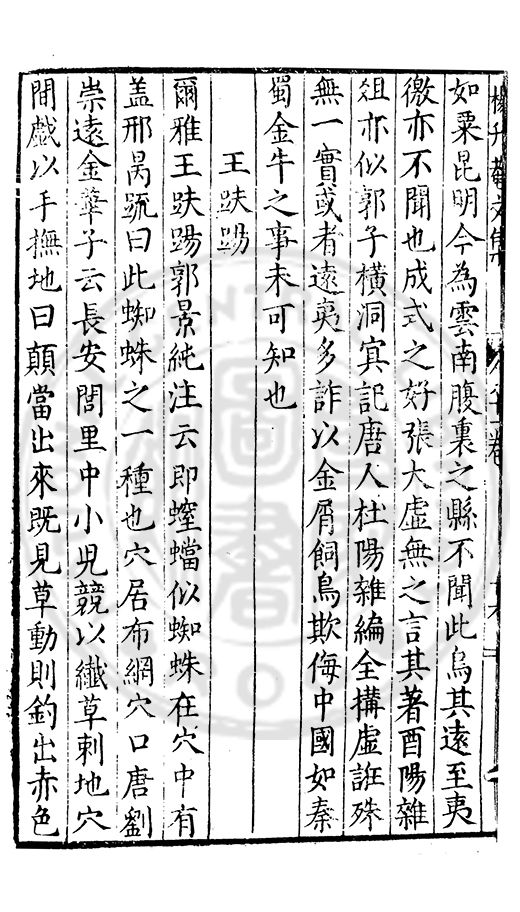 楊升菴文集
卷八十一
如粟昆明今為雲南腹裏之縣不聞此鳥其遠至夷
徼亦不聞也成式之好張大虛無之言其著酉陽雜
俎亦似郭子橫洞冥記唐人杜陽雜編全搆虛誑殊
無一實或者遠夷多詐以金屑飼鳥欺侮中國如秦
蜀金牛之事未可知也
王蛈蝪
爾雅王蛈蝪郭景純注云即螲蟷似蜘蛛在穴中有
盖邢昺䟽曰此蜘蛛之一種也穴居布網穴口唐劉
崇遠金華子云長安閭里中小兒競以纎草刺地穴
間戲以手撫地曰顛當出來既見草動則釣出赤色